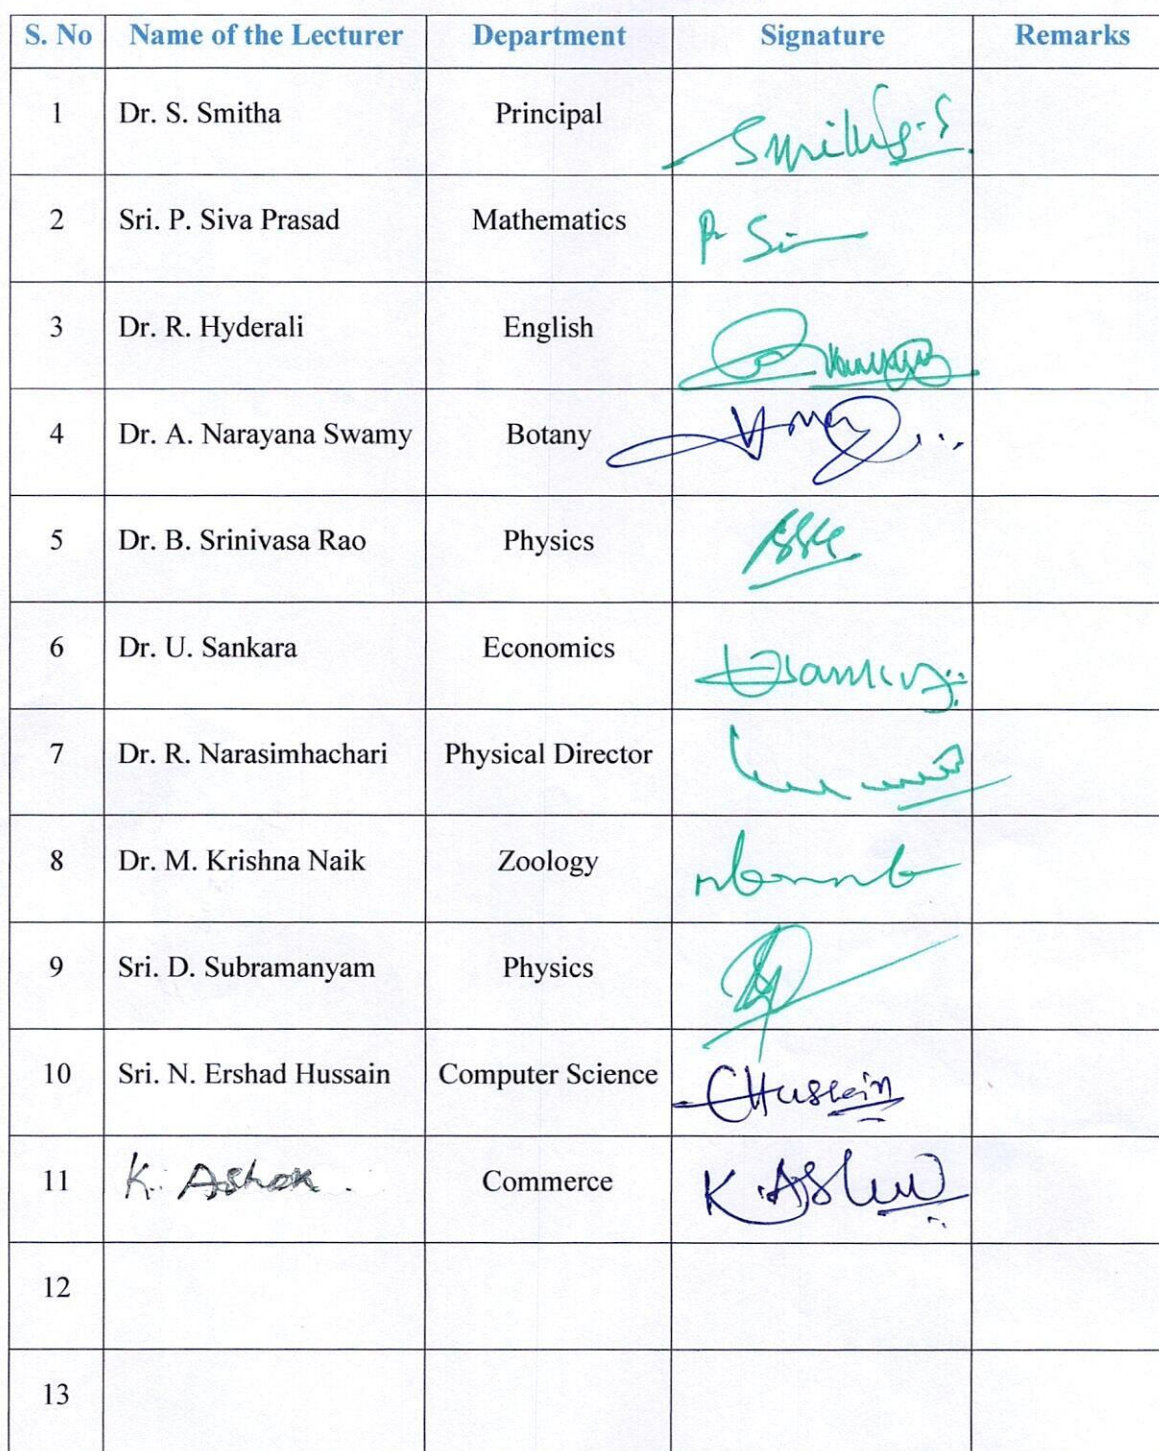 S. No Name of the Lecturer Department Signature Remarks
1 Dr. S. Smitha Principal Smitha.S
2 Sri. P. Siva Prasad Mathematics P. Si
3 Dr. R. Hyderali English
4 Dr. A. Narayana Swamy Botany
5 Dr. B. Srinivasa Rao Physics
6 Dr. U. Sankara Economics
7 Dr. R. Narasimhachari Physical Director
8 Dr. M. Krishna Naik Zoology
9 Sri. D. Subramanyam Physics
10 Sri. N. Ershad Hussain Computer Science EHussain
11 K. Ashok. Commerce K. Ashok
12
13